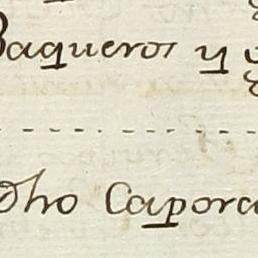 Baqueros y
dho Capora